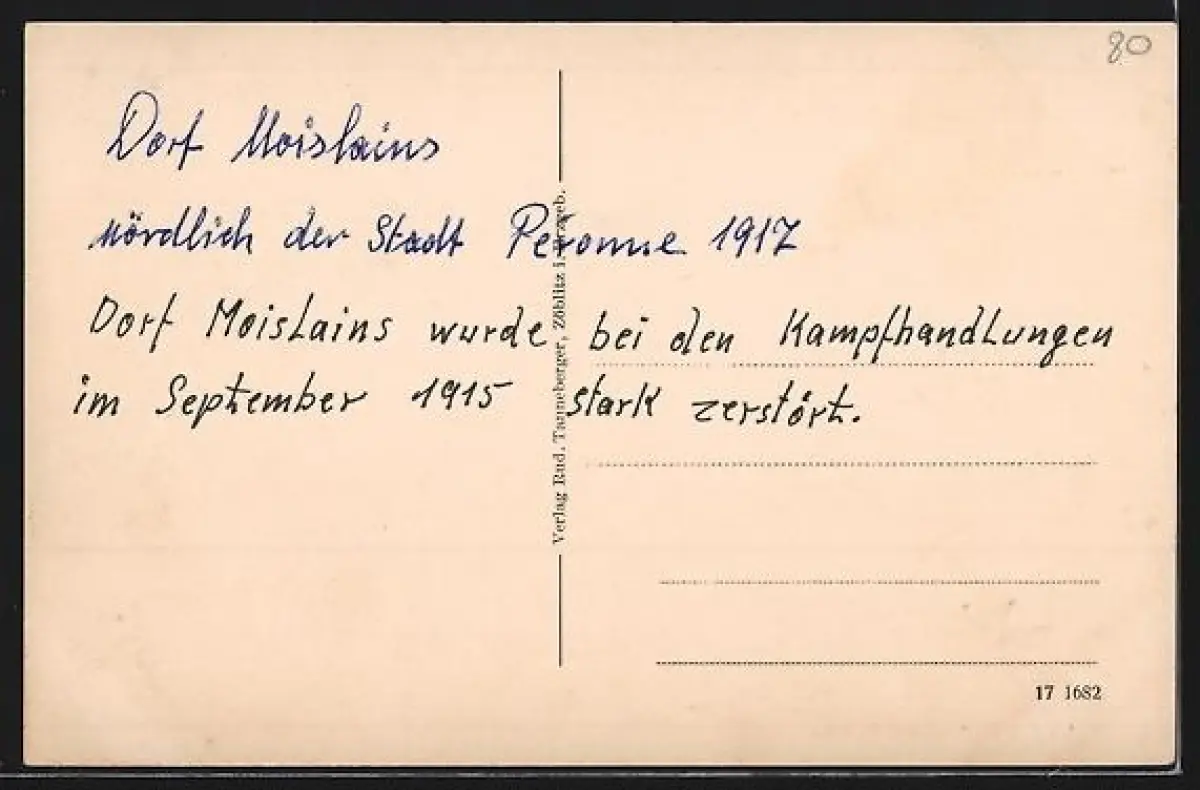 80
Dorf Moislains
nördlich der Stadt Peronne 1917
Dorf Moislains wurde bei den Kampfhandlungen
im September 1915 stark zerstört.
Verlag Rud. Tanneberger, Zöblitz i. Erzgeb.
17 1682